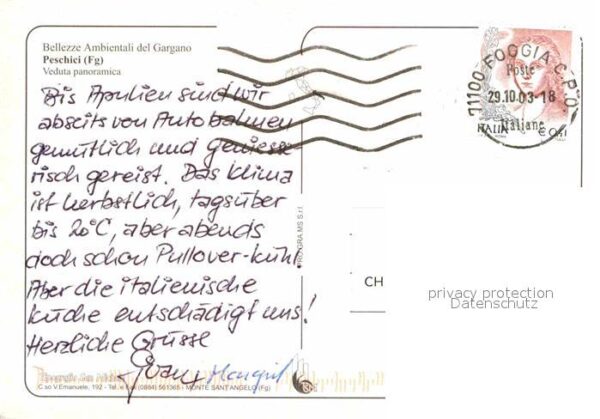 Bellezze Ambientali del Gargano
Peschici (Fg)
Veduta panoramica
Bis Apulien sind wir
abseits von Autobahnen
gemütlich und geniesse-
risch gereist. Das Klima
ist herbstlich, tagsüber
bis 20°C, aber abends
doch schon Pullover-kühl.
Aber die italienische
Küche entschädigt uns!
Herzliche Grüsse
C.so V.Emanuele, 192 - Tel. e Fax (0884) 561365 - MONTE SANT'ANGELO (Fg)
PRO.GRA.MS S.r.l.
71100 FOGGIA C.P.O.
Poste
29.10.03-18
Italiane
ITALIA
CH
privacy protection
Datenschutz